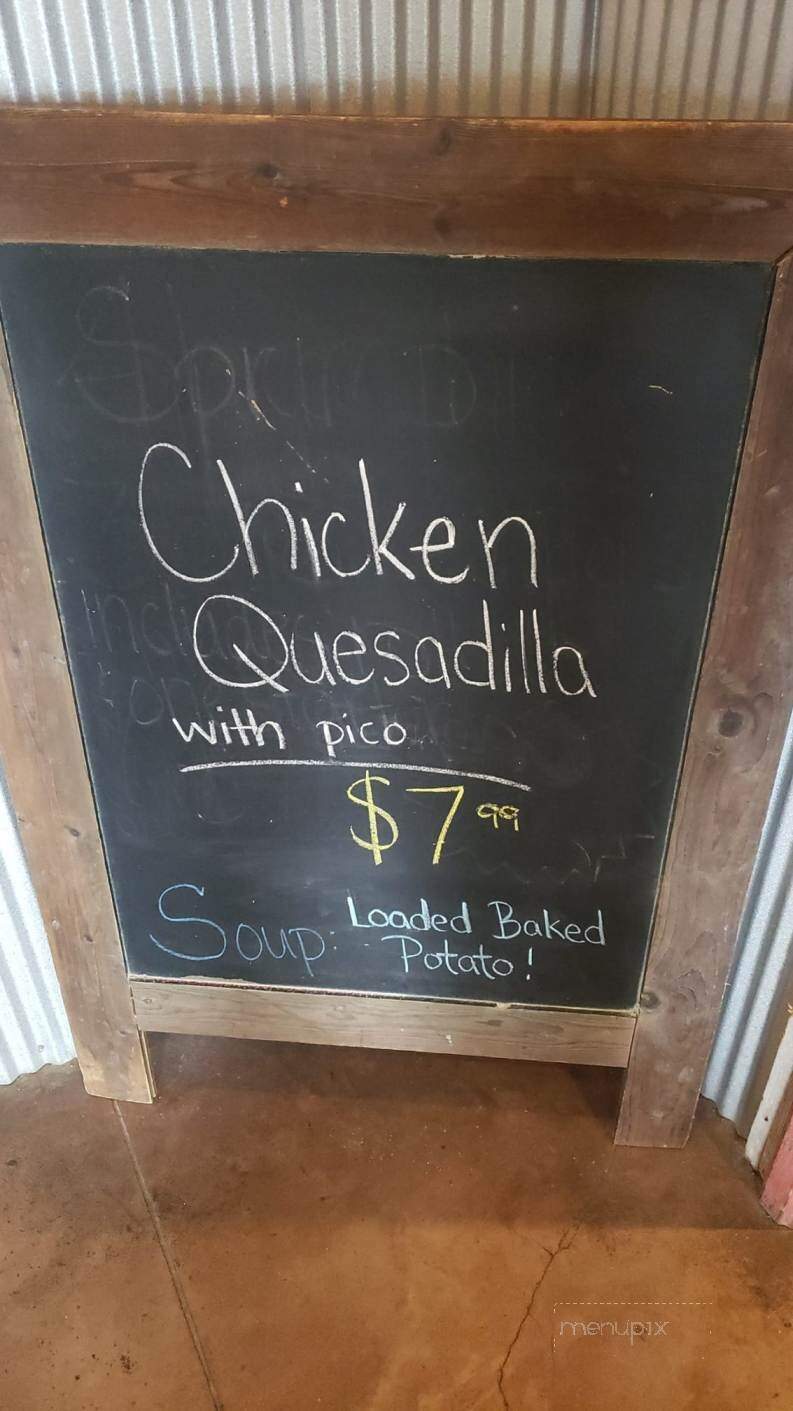 Chicken
Quesadilla
with pico
$7.99
Soup: Loaded Baked
Potato!
menupix